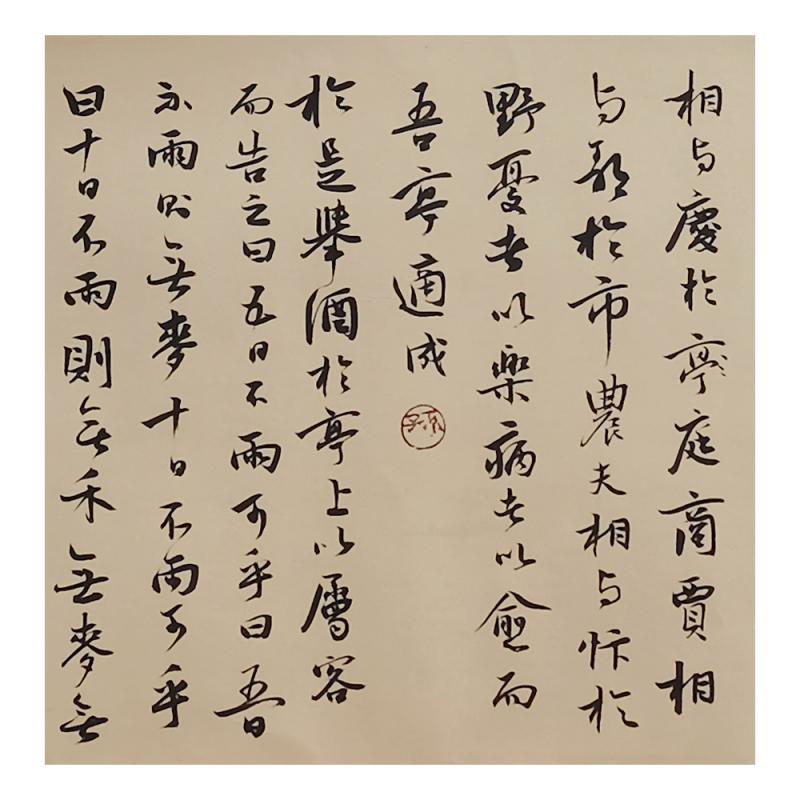 相与慶於亭庭商賈相
与歌於市農夫相与忭於
野憂者以樂病者以愈而
吾亭適成
於是舉酒於亭上以屬客
而告之曰五日不雨可乎曰五日
不雨则無麥十日不雨可乎
曰十日不雨則無禾無麥無